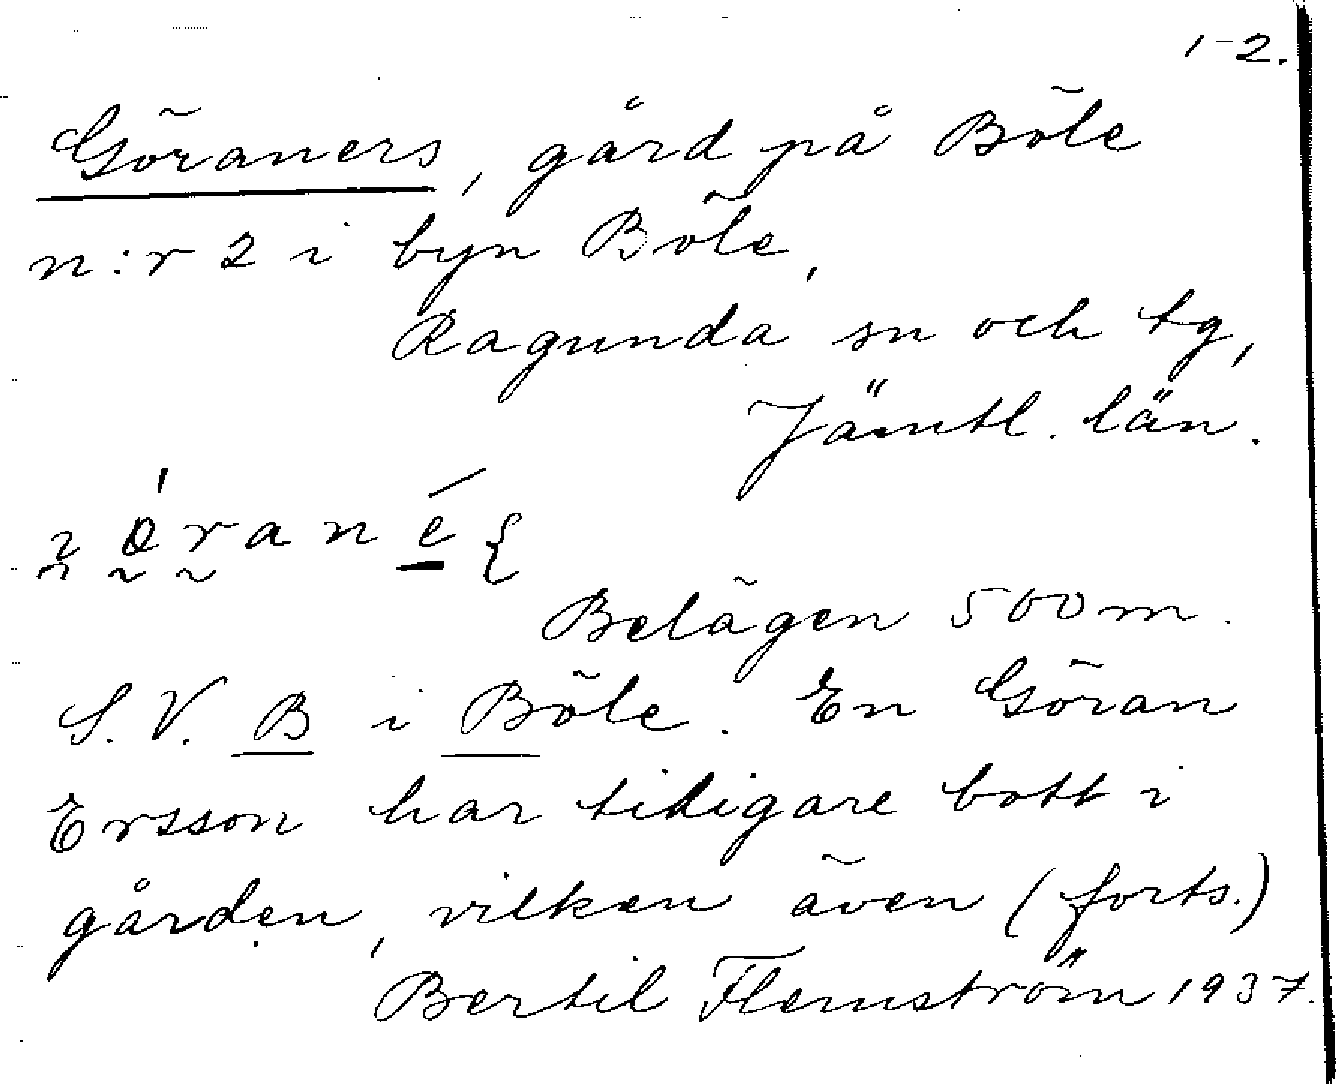 1-2.
Göraners, gård på Böle
n:r 2 i byn Böle,
Ragunda sn och tg,
Jämtl. län.
Belägen 500 m.
S.V. B i Böle. En Göran
Ersson har tidigare bott i
gården, vilken även (forts.)
Bertil Flemström 1937.